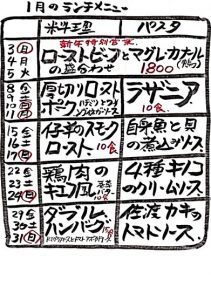 1月のランチメニュー
米料理 パスタ
3 ㊐
4 月
5 火
新年特別営業
ローストビーフとマグレ・カナール
の盛合わせ 1800
8 金
9 土
10 ㊐
11
厚切りロースト
ポーク
ラザニア
10食
15 金
16 土
17 ㊐
仔羊のスモーク
ロースト 10食
白身魚と貝
の煮込みソース
22 金
23 土
24 ㊐
鶏肉の
キエフ風
10食
4種キノコ
のクリームソース
29 金
30 土
31 ㊐
ダブル
ハンバーグ
佐渡カキの
トマトソース